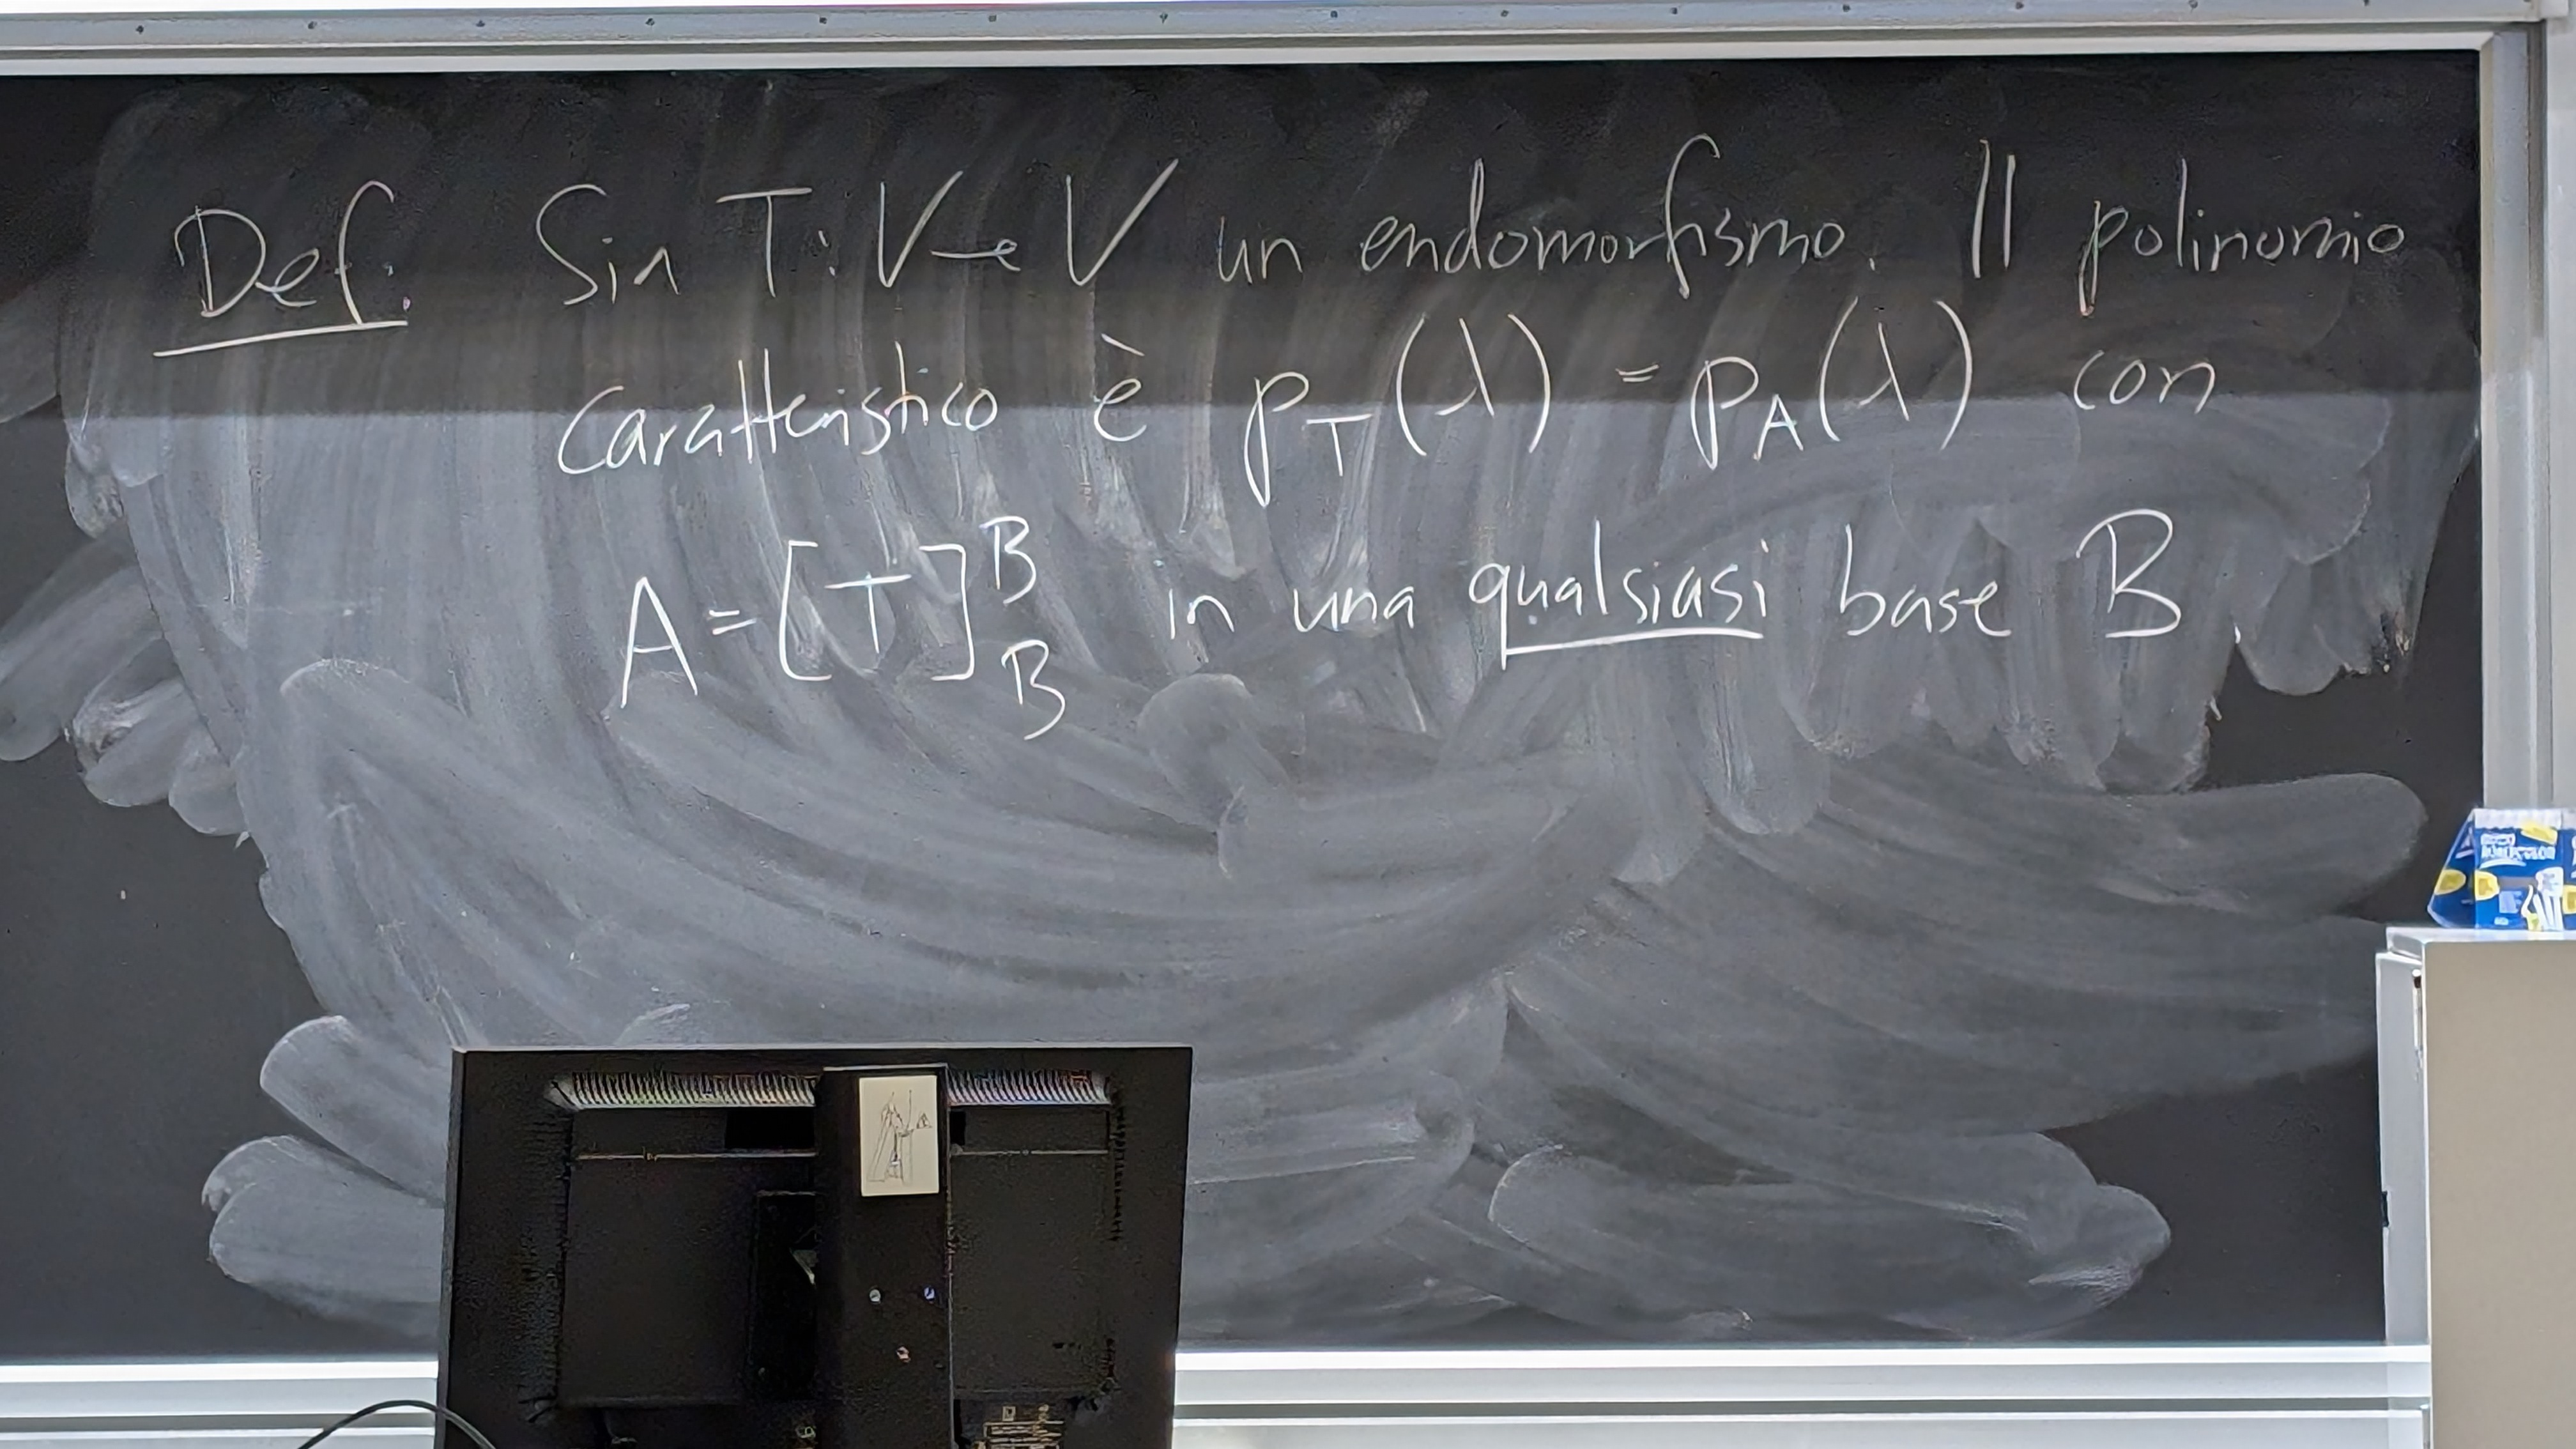 Def: Sia T: V → V un endomorfismo. Il polinomio
caratteristico è p_T(λ) = p_A(λ) con
A = [T]^B_B in una qualsiasi base B.